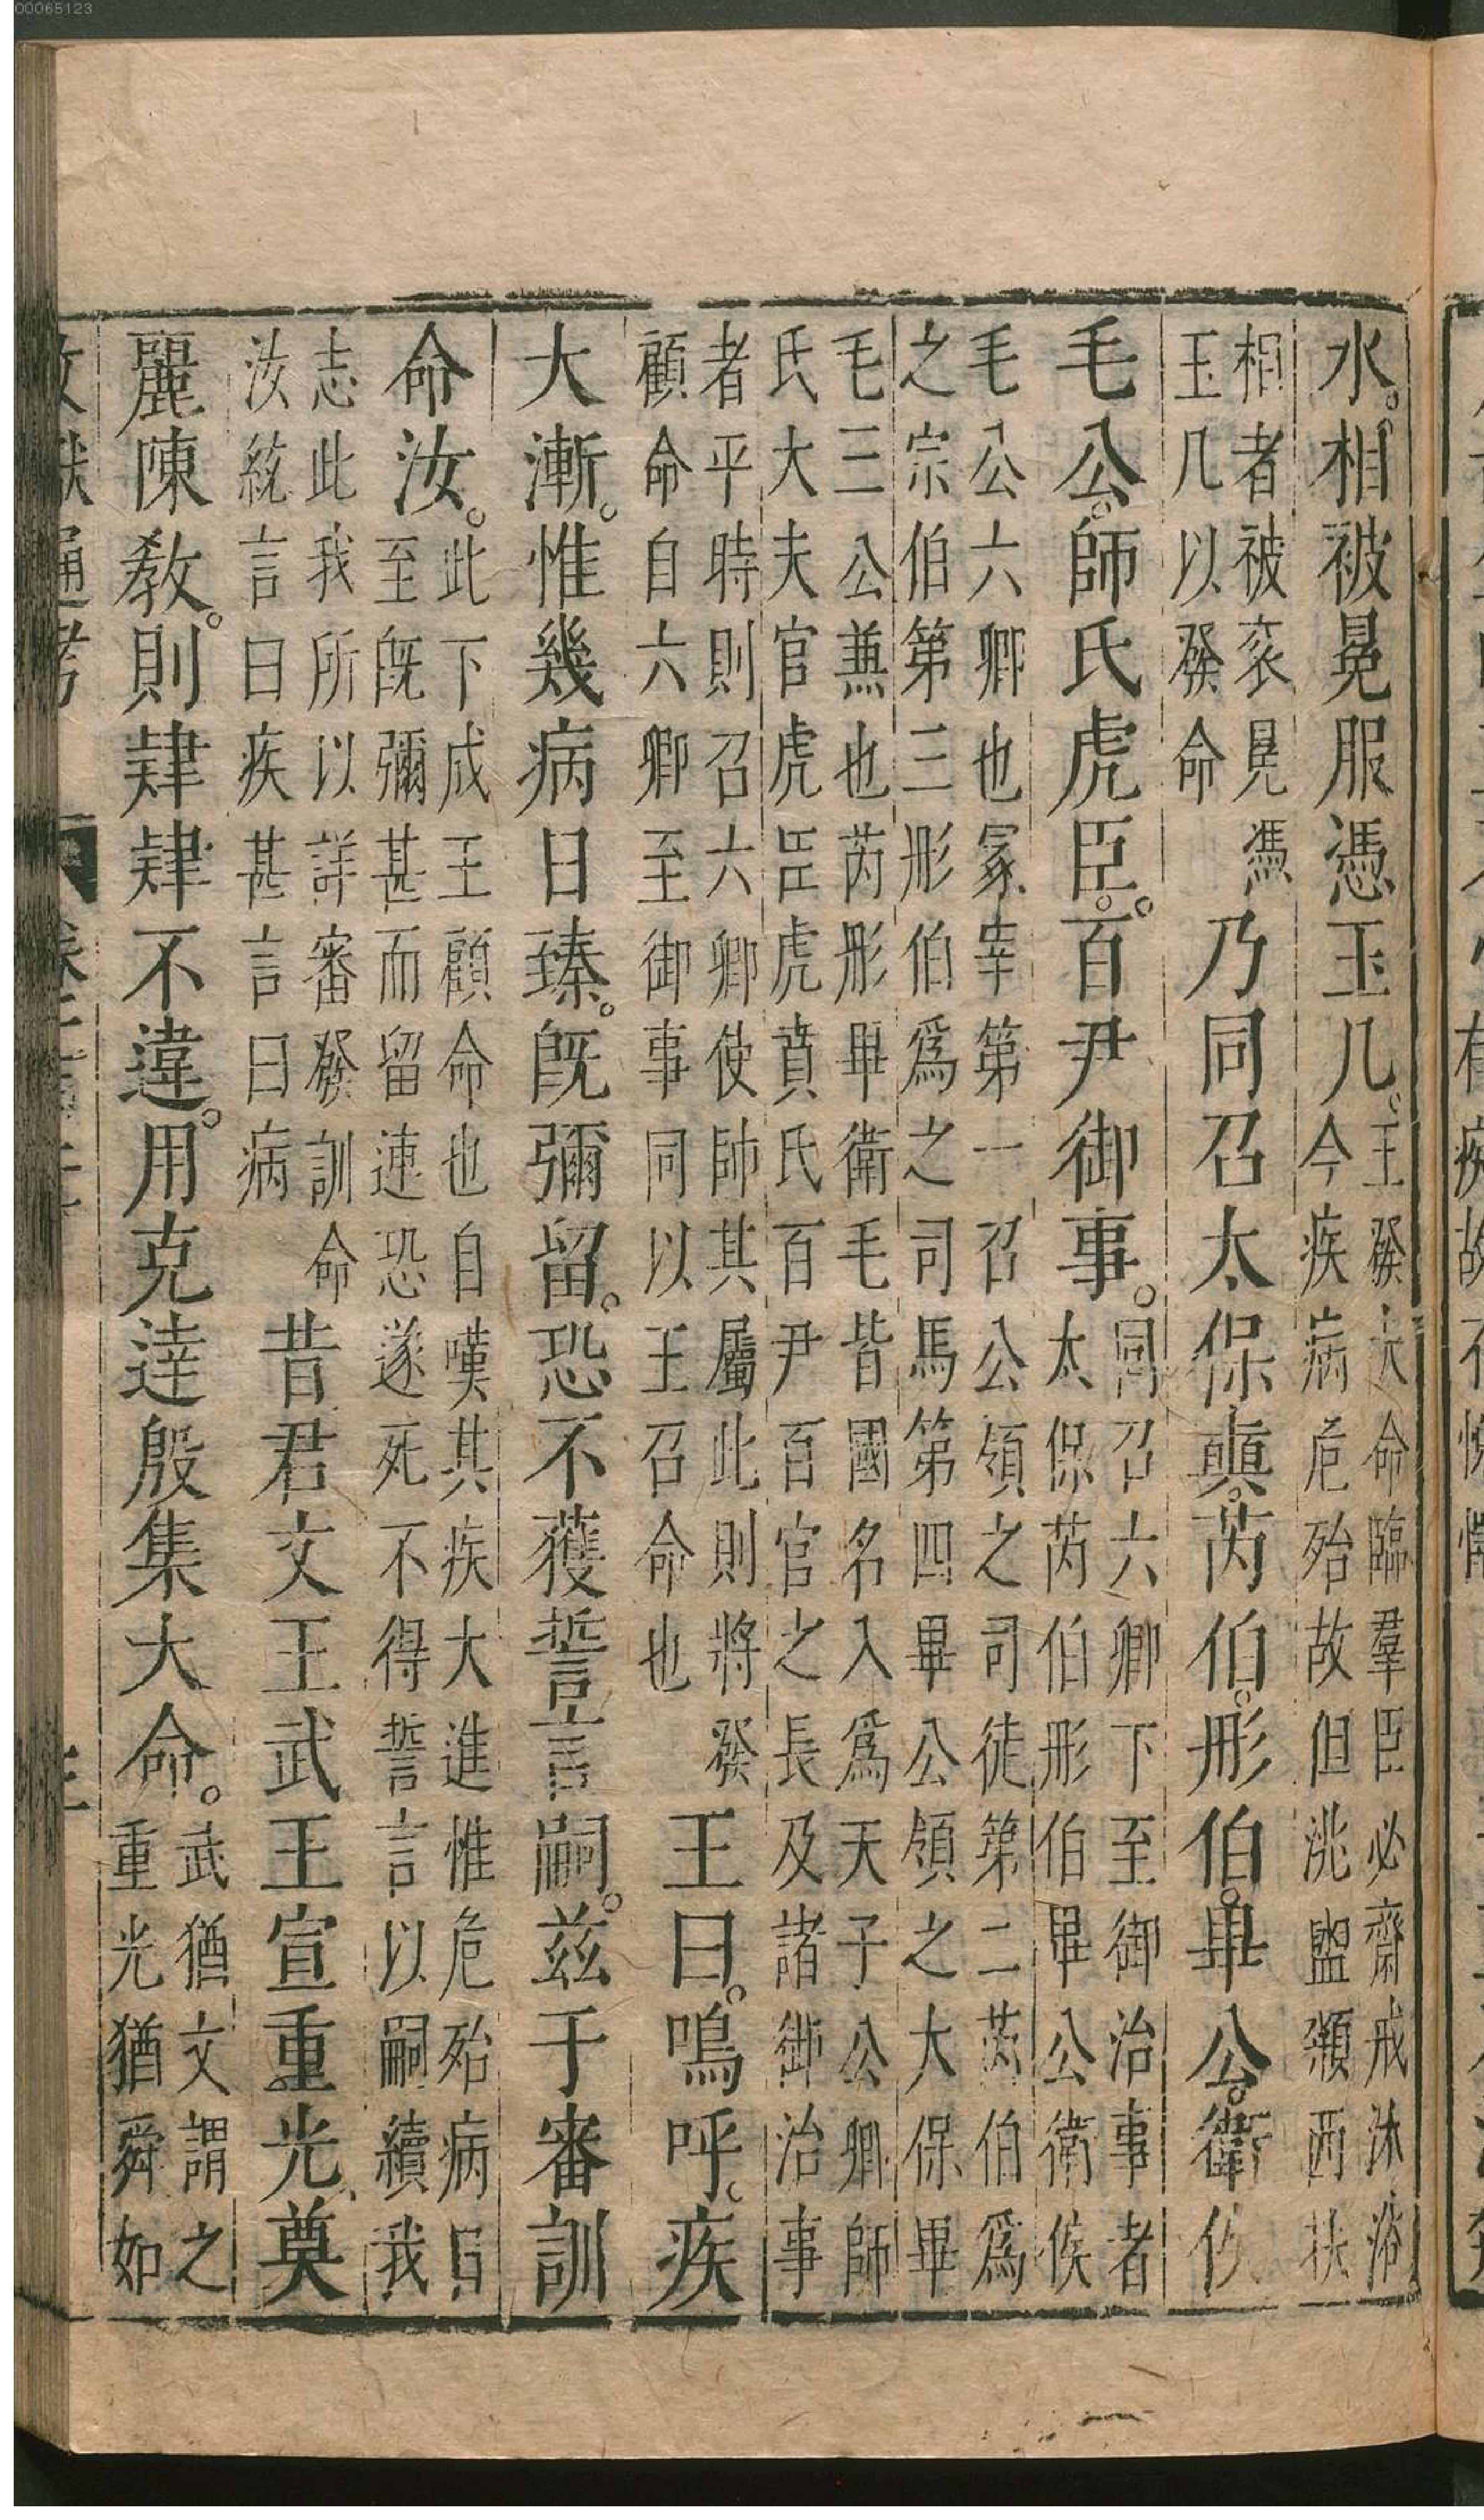 00065123
水。相被冕服憑玉几。
王發大命臨羣臣必齋戒沐浴
今疾病危殆故但洮盥頮西扶
相者被衮冕憑
玉几以發命
乃同召太保奭。芮伯。彤伯。畢公。衛侯
毛公。師氏虎臣。百尹御事。
同召六卿下至御治事者
太保芮伯彤伯畢公衛侯
毛公六卿也冢宰第一召公領之司徒第二芮伯爲
之宗伯第三彤伯爲之司馬第四畢公領之大保畢
毛三公兼也芮彤畢衛毛皆國名入爲天子公卿師
氏大夫官虎臣虎賁氏百尹百官之長及諸御治事
者平時則召六卿使帥其屬此則將發
顧命自六卿至御事同以王召命也
王曰。嗚呼。疾
大漸。惟幾病日臻。旣彌留。恐不獲誓言嗣。兹于審訓
命汝。
此下成王顧命也自嘆其疾大進惟危殆病日
至旣彌甚而留連恐遂死不得誓言以嗣續我
志此我所以詳審發訓命
汝統言曰疾甚言曰病
昔君文王武王宣重光奠
麗陳敎。則肄肄不違。用克達殷集大命。
武猶文謂之
重光猶舜如